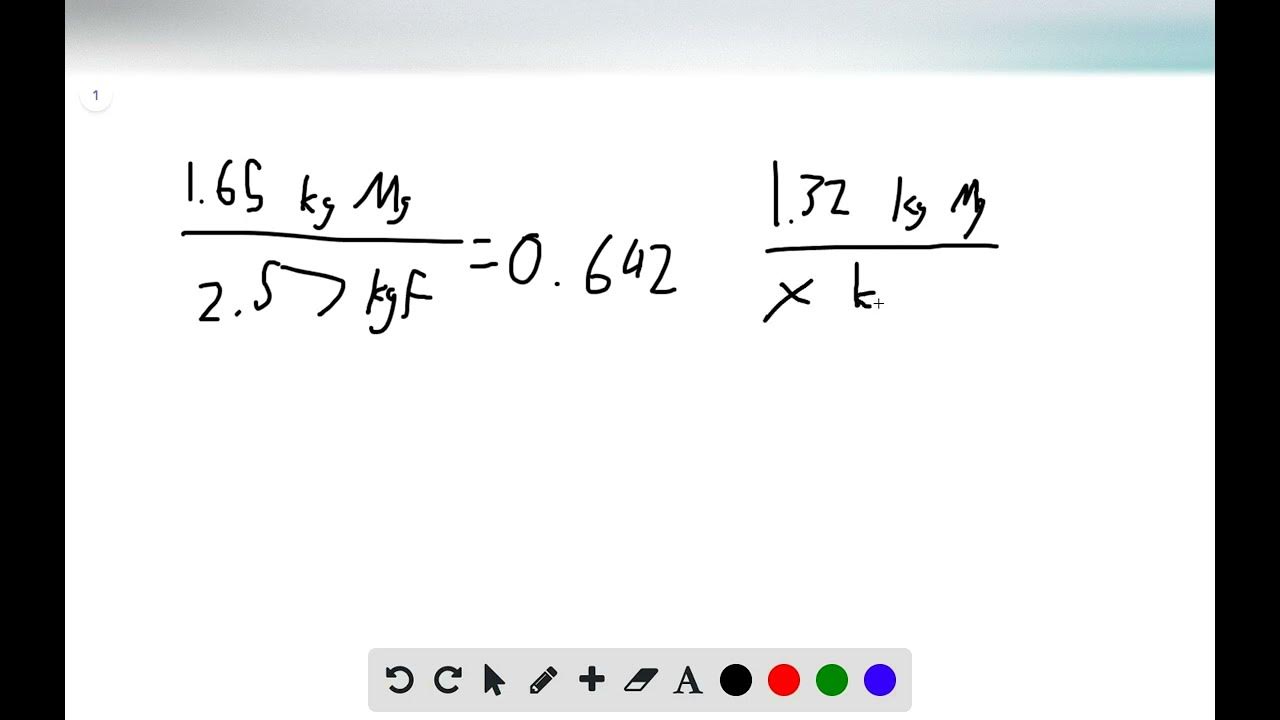 1
1.65 kg Mg
2.57 kgF
= 0.642
1.32 kg Mg
x k
A